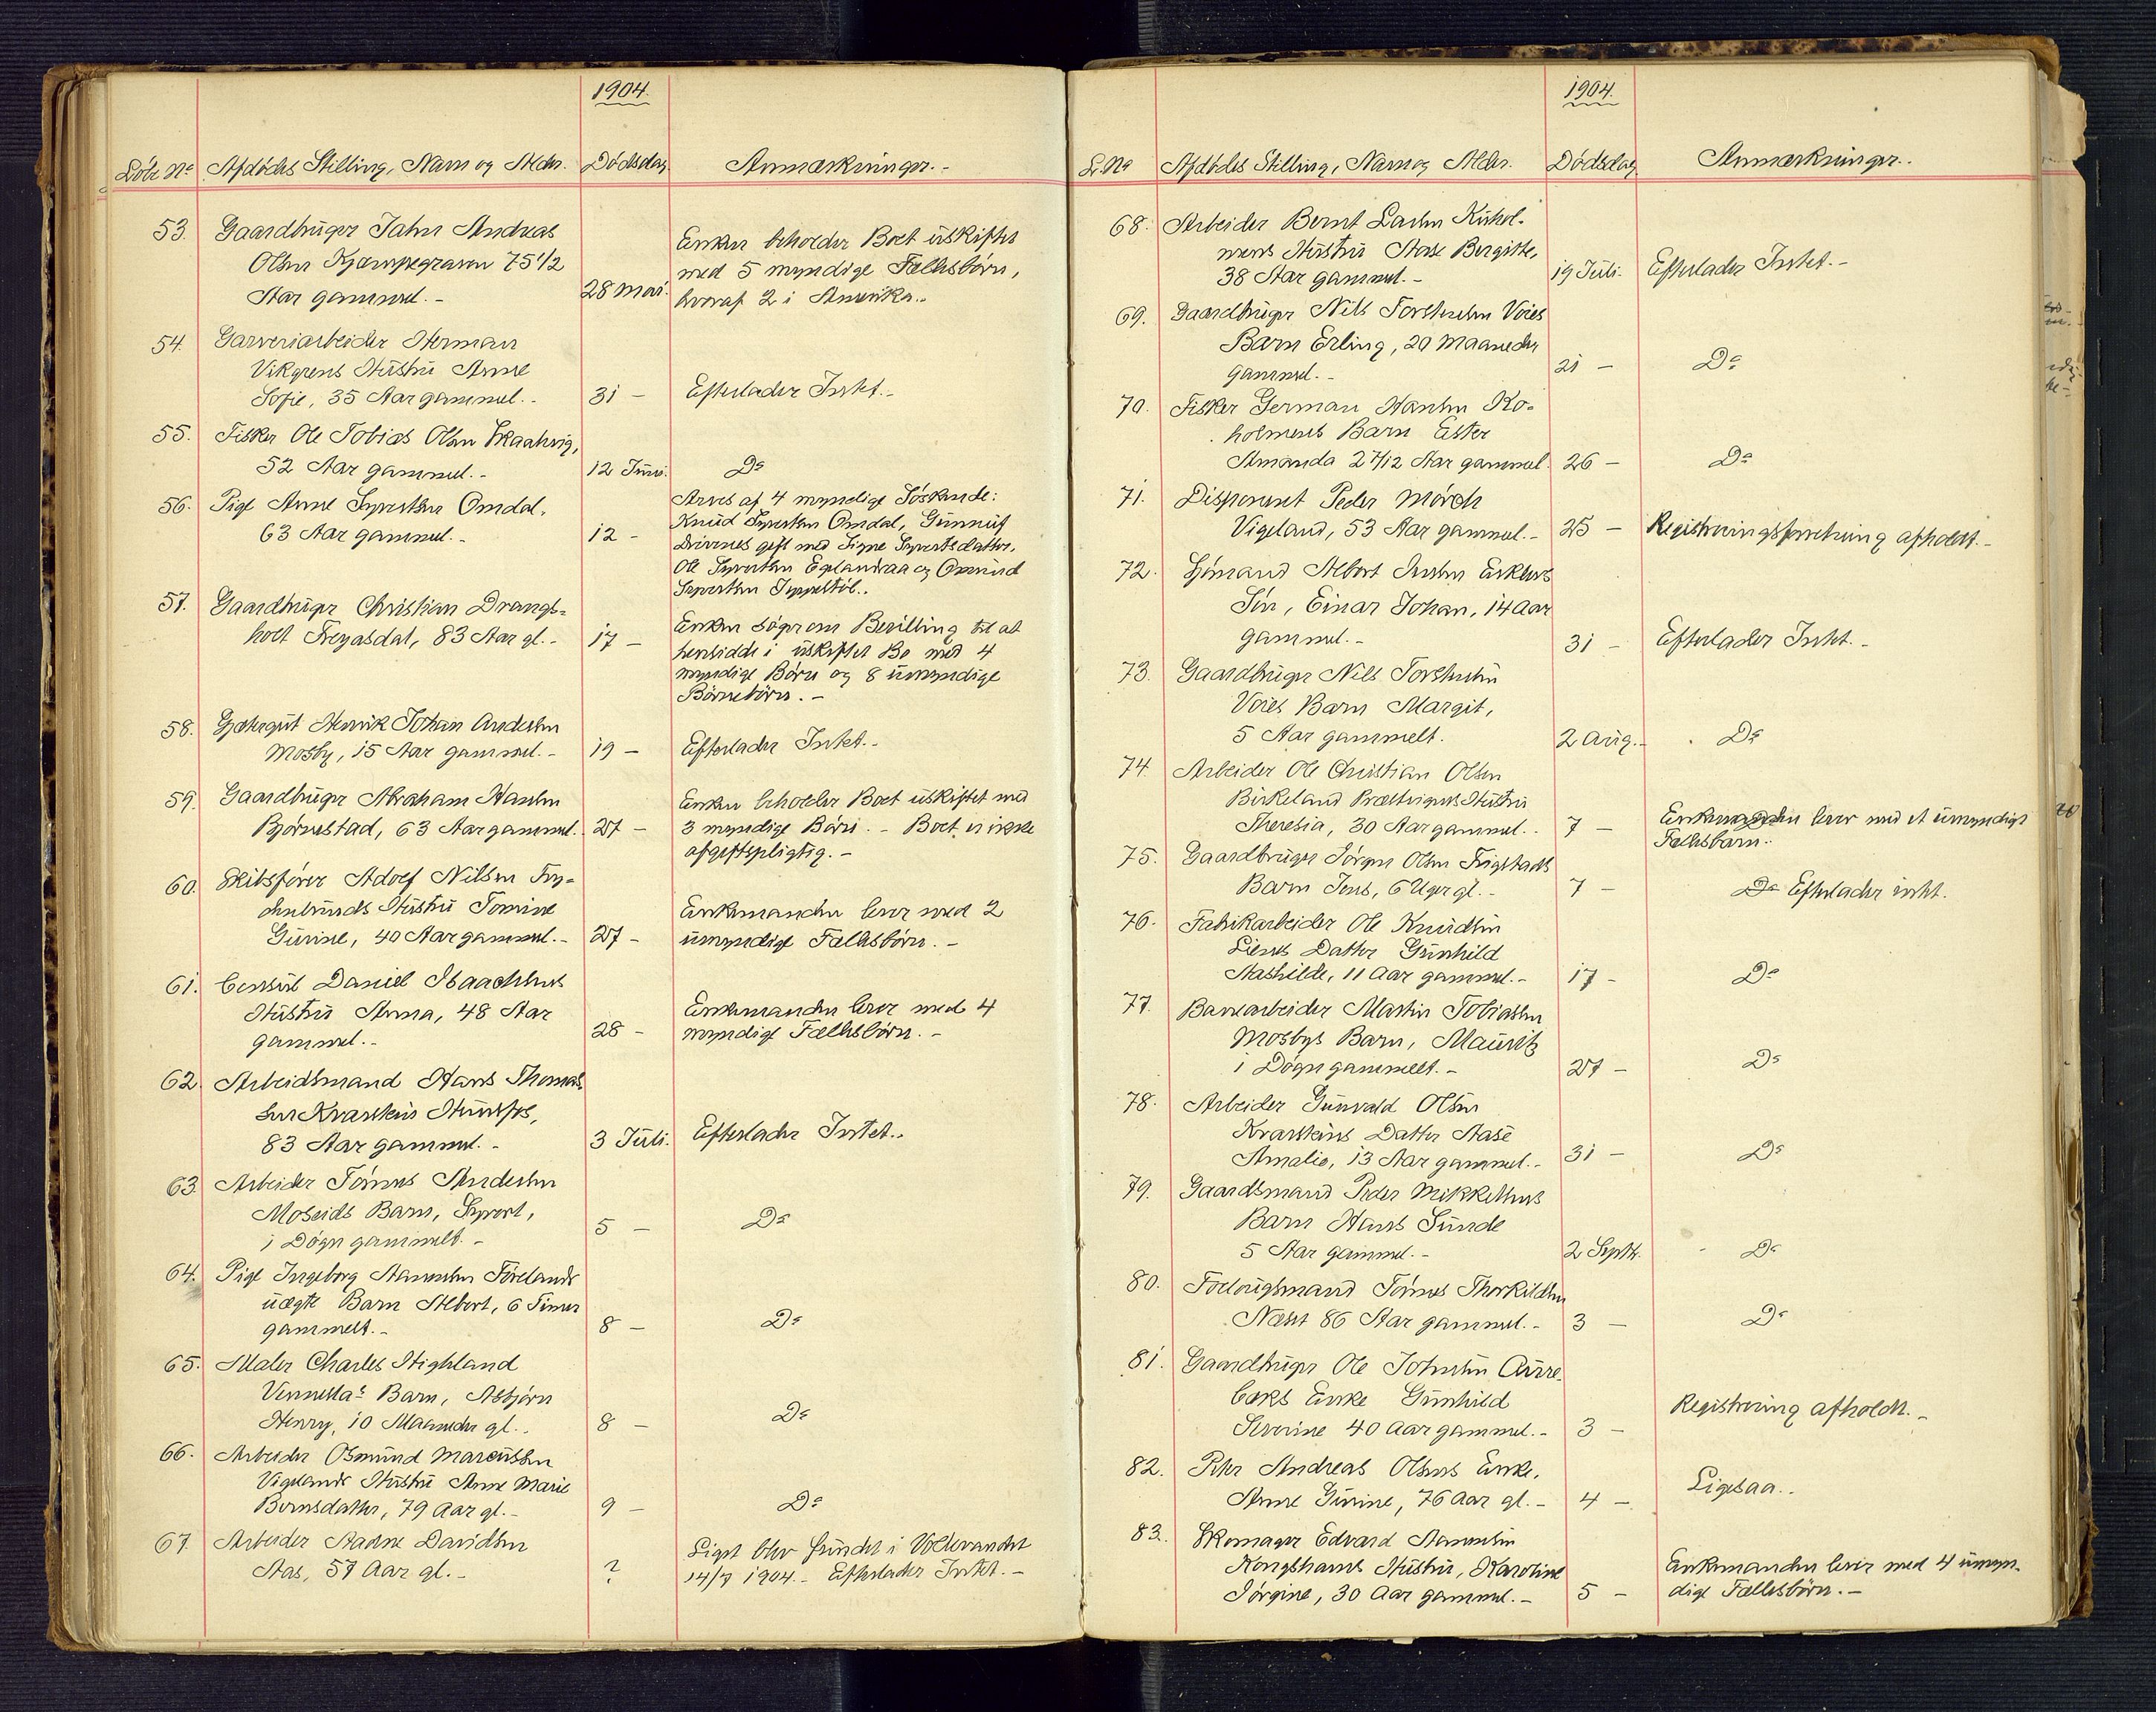 1904.
Löbe No Afdødes Stilling, Navn og Alder. Dødsdag. Anmærkninger.-
53. Gaardbruger Jahn Andreas
Olsen Kjæmpegraven 75 1/2
Aar gammel.- 28 Mai.
Enken beholder Boet uskiftet
med 5 myndige Fællesbörn,
hvoraf 2 i Amerika.-
54. Garveriarbeider Herman
Vikgrens Hustru Anne
Sofie, 35 Aar gammel.- 31 - Efterlader Intet.-
55. Fisker Ole Tobias Olsen Skaahvig,
52 Aar gammel.- 12 Juni. Do
56. Pige Anne Syvertsen Omdal,
63 Aar gammel.- 12 -
Arves af 4 myndige Söskende:
Knud Syvertsen Omdal, Gunnuf
Drivenes gift med Signe Syvertsdatter,
Ole Syvertsen Eglandsaa og Osmund
Syvertsen
57. Gaardbruger Christian Drangs-
holt Frøyasdal, 83 Aar gl.- 17 -
Enken söger om Bevilling til at
hensidde i uskiftet Bo med 4
myndige Börn og 8 umyndige
Börnebörn.-
58. Gjætergut Henrik Johan Andersen
Mosby, 15 Aar gammel.- 19 - Efterlader Intet.-
59. Gaardbruger Abraham Hansen
Bjørnestad, 63 Aar gammel. 27 -
Enken beholder Boet uskiftet med
3 myndige Börn.- Boet er ikke
afgiftspligtig.-
60. Skibsfører Adolf Nilsen Fry-
denlunds Hustru Tomine
Gurine, 40 Aar gammel.- 27 -
Enkemanden lever med 2
umyndige Fællesbörn.-
61. Consul Daniel Isaachsens
Hustru Anna, 48 Aar
gammel.- 28 -
Enkemanden lever med 4
myndige Fællesbörn.-
62. Arbeidsmand Hans Thomas-
sen Kvarstein Hunsfos,
83 Aar gammel.- 3 Juli. Efterlader Intet.-
63. Arbeider Tönnes Andersen
Moseids Barn, Syvert,
1 Døgn gammelt.- 5 - Do
64. Pige Ingeborg Aanensen Førelands
uægte Barn Albert, 6 Timer
gammelt.- 8 - Do
65. Maler Charles Highland
Vennesla's Barn, Asbjørn
Henry, 10 Maaneder gl.. 8 - Do
66. Arbeider Osmund Marcussen
Vigelands Hustru Anne Marie
Berntsdatter, 79 Aar gl.- 9 - Do
67. Arbeider Aadne Davidsen
Aas, 57 Aar gl.- ?
Liget blev fundet i Vollevandet
14/7 1904.- Efterlader Intet.-
1904.
L. No Afdødes Stilling, Navn og Alder. Dødsdag Anmærkninger..
68. Arbeider Bernt Larsen Kirkhol-
mens Hustru Aase Bergitte,
38 Aar gammel.- 19 Juli. Efterlader Intet.-
69. Gaardbruger Nils Torstensen Voies
Barn Erling, 20 Maaneder
gammel.- 21 - Do
70. Fisker German Hansen Ko-
holmens Barn Ester
Amanda 2 7/12 Aar gammel. 26 - Do
71. Disponent Peder Mörch
Vigeland, 53 Aar gammel.- 25 - Registreringsforretning afholdt.-
72. Sjömand Albert Jensen Eskens
Sön, Einar Johan, 14 Aar
gammel.- 31 - Efterlader Intet.-
73. Gaardbruger Nils Torstensen
Voies Barn Margit,
5 Aar gammelt. 2 Aug.- Do
74. Arbeider Ole Christian Olsen
Birkeland Præstvigens Hustru
Theresia, 30 Aar gammel.. 7 -
Enkemanden lever med et umyndigt
Fællesbarn.-
75. Gaardbruger Jörgen Olsen Frigstads
Barn Jens, 6 Uger gl.- 7 - Do Efterlader intet.
76. Fabrikarbeider Ole Knudsen
Liens Datter Gunhild
Mathilde, 11 Aar gammel.- 17 - Do
77. Banearbeider Martin Tobiassen
Mosbys Barn, Mauritz
1 Døgn gammelt.- 27 - Do
78. Arbeider Gunvald Olsen
Kvarsteins Datter Aase
Amalie, 13 Aar gammel.- 31 - Do
79. Gaardsmand Peder Mikkelsens
Barn Hans Sunde
5 Aar gammel.- 2 Septb. - Do
80. Forlougsmand Tönnes Thorkildsen
Næset 86 Aar gammel.- 3 - Do
81. Gaardbruger Ole Johnsen Aurre-
bæks Enke Gunhild
Severine 40 Aar gammel.- 3 - Registrering afholdt.-
82. Peter Andreas Olsens Enke,
Anne Gurine, 76 Aar gl.- 4 - Ligesaa..
83. Skomager Edvard Aanensen
Kongshavns Hustru, Karoline
Jørgine, 30 Aar gammel.- 5 -
Enkemanden lever med 4 umyn-
dige Fællesbörn.-